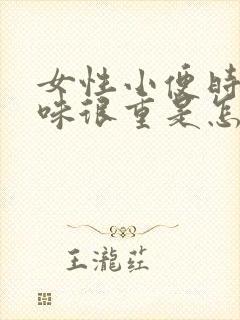 女性小便时
味很重是怎
王瀧荭